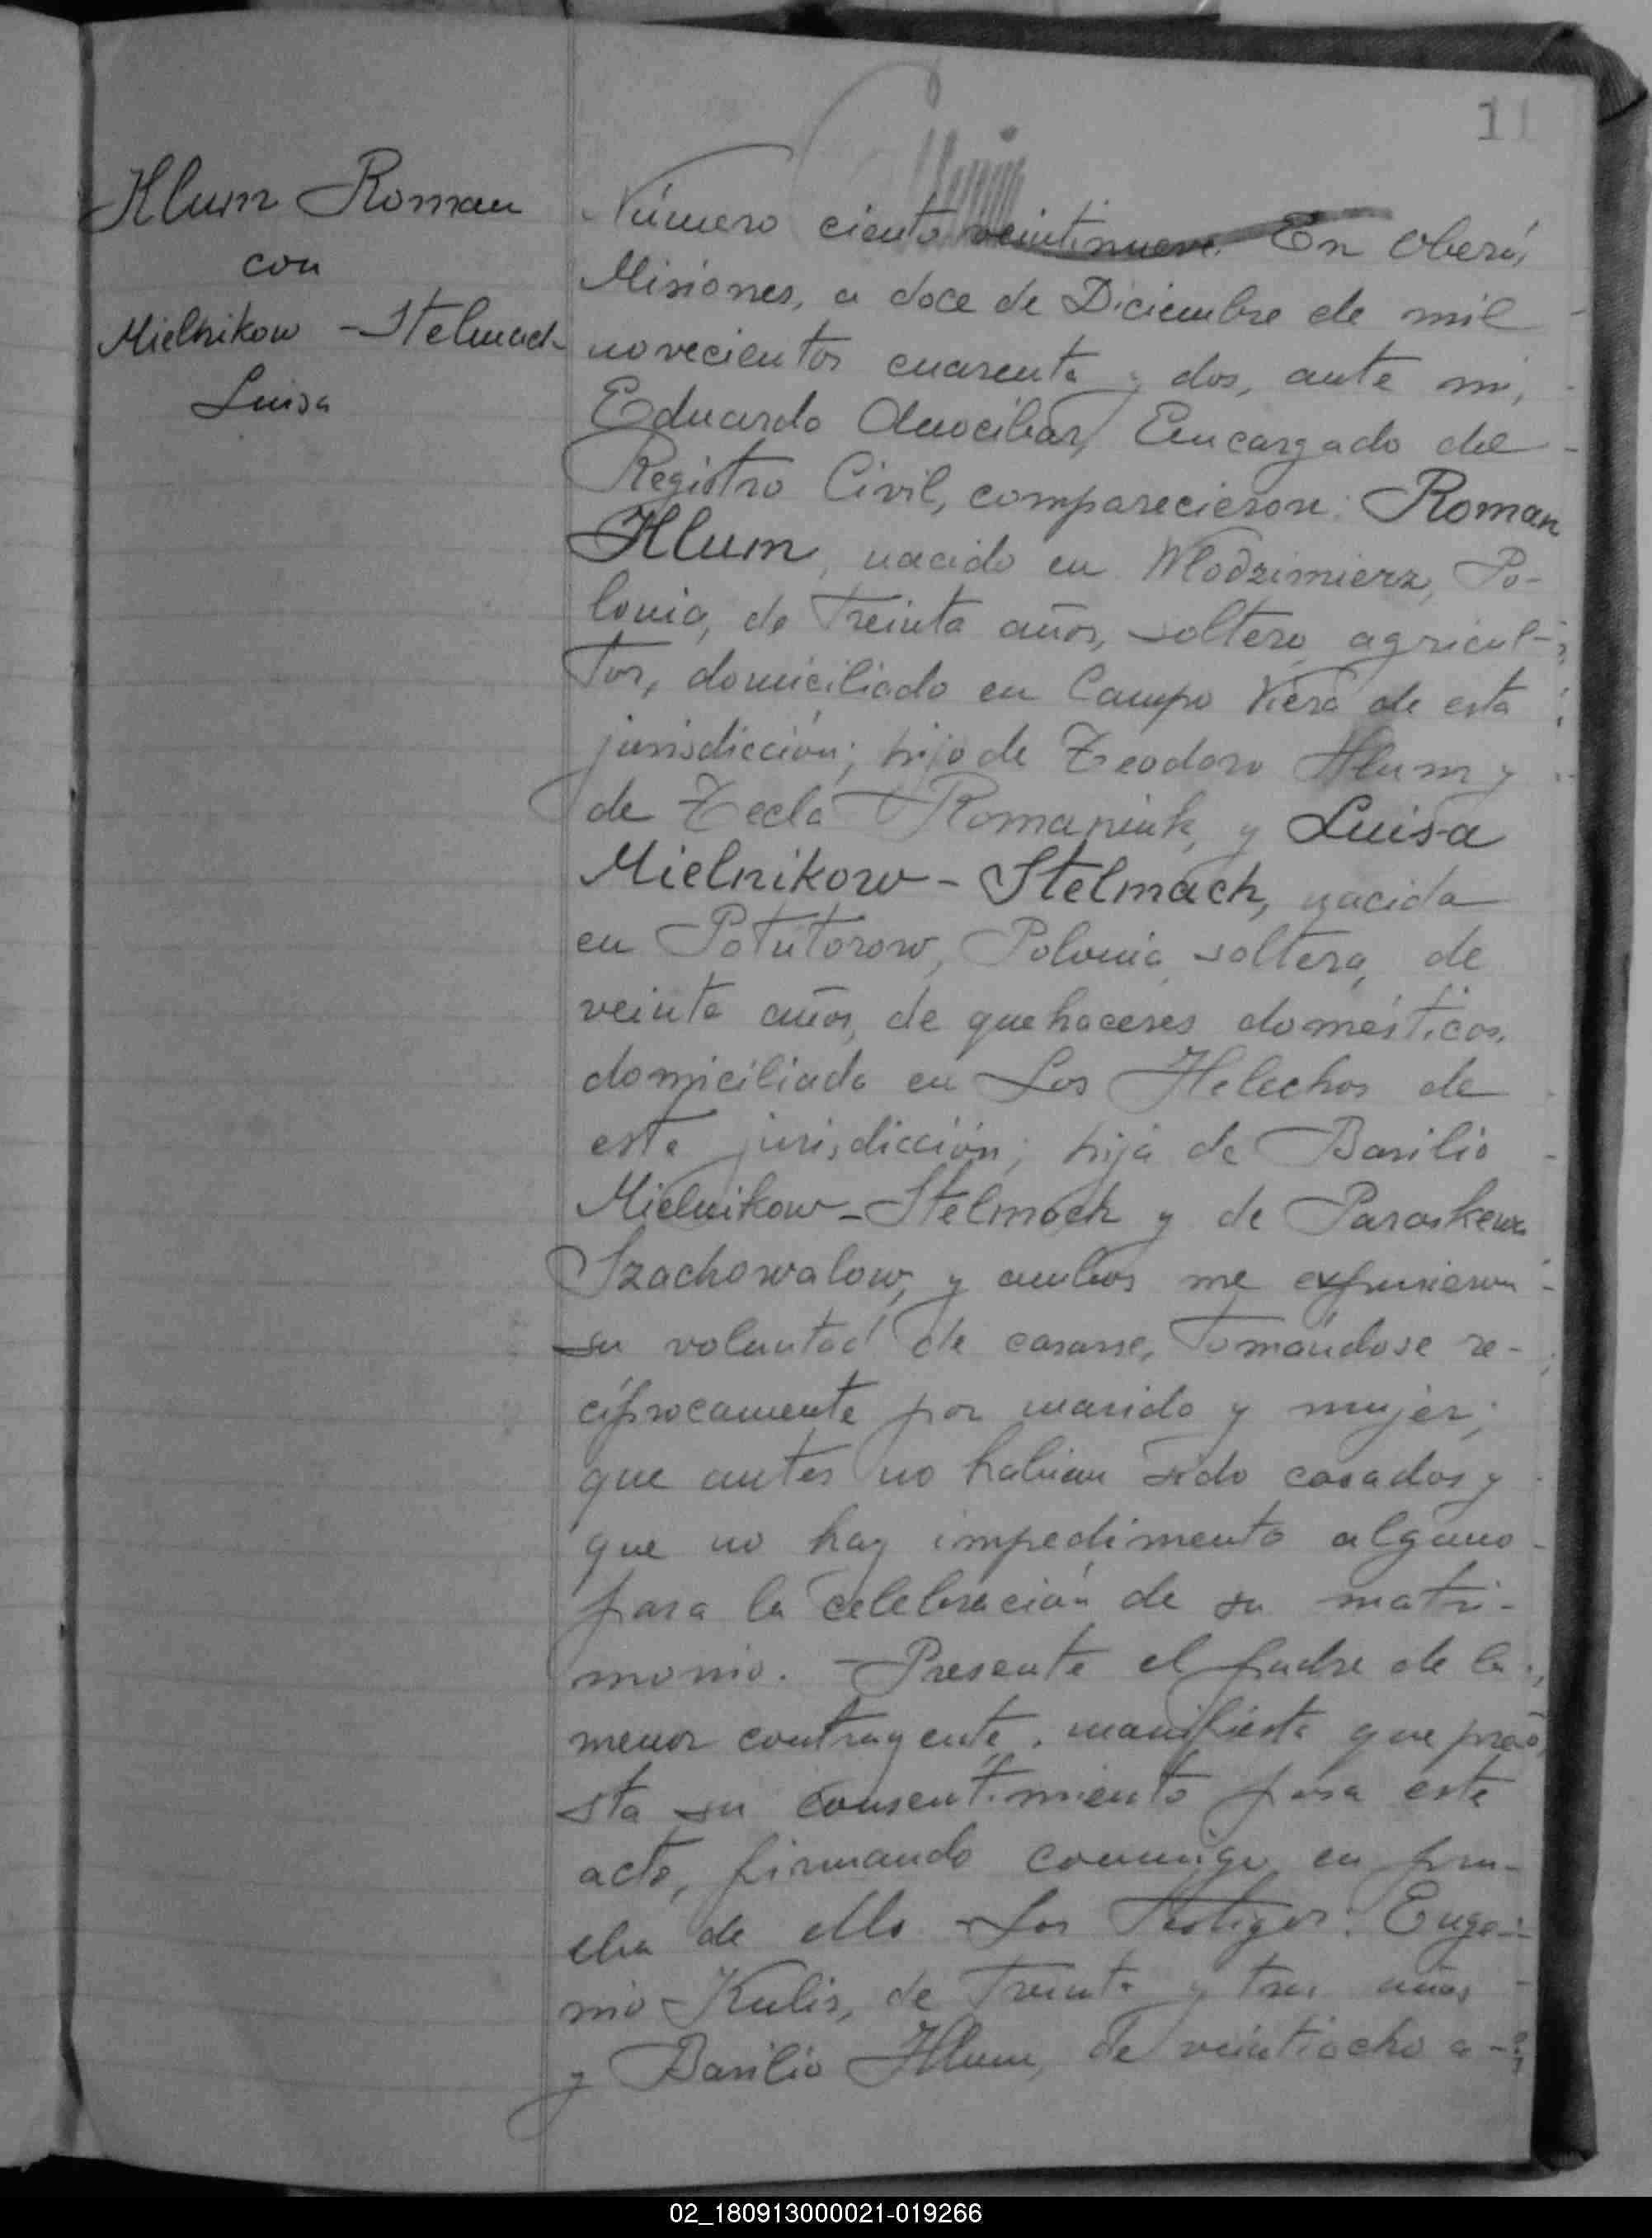 11
Hlum Roman
con
Mielnikow - Stelmach
Luisa
Número ciento veintinueve. En Oberá,
Misiones, a doce de Diciembre de mil
novecientos cuarenta y dos, ante mi,
Eduardo Amocibar, Encargado del
Registro Civil, comparecieron: Roman
Hlum, nacido en Wlodzimierz, Po-
lonia, de treinta años, soltero, agricul-
tor, domiciliado en Campo Viera de esta
jurisdicción; hijo de Teodoro Hlum y
de Tecla Romaniuk, y Luisa
Mielnikow - Stelmach, nacida
en Potutorow, Polonia, soltera, de
veinte años, de quehaceres domésticos,
domiciliada en Los Helechos de
esta jurisdicción; hija de Basilio
Mielnikow - Stelmach y de Paraskewa
Szachowalow, y ambos me expusieron
su voluntad de casarse, tomándose re-
cíprocamente por marido y mujer;
que antes no habian sido casados y
que no hay impedimento alguno
para la celebración de su matri-
monio. - Presente el padre de la
menor contrayente, manifiesta que pre-
sta su consentimiento para este
acto, firmando conmigo en prue-
eba de ello - Los testigos: Euge-
nio Kulis, de treinta y tres años
y Basilio Hlum, de veintiocho a-
02_180913000021-019266